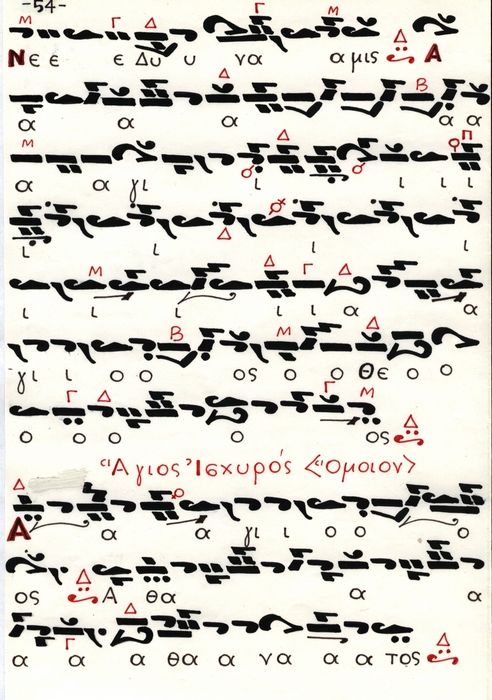 -54-
Μ Γ Δ Γ Μ
Νε ε ε Δυ υ να α μις Δ Α
Δ Β
α α α α α
Μ Δ Π
α α γι ι ι ι ι
Δ
ι ι ι ι
Μ Δ Γ Δ
ι ι ι ι ι α α
Β Μ Δ
γι ι ο ο ος ο ο Θε ο ο
Γ Δ Γ Μ
ο ο ο ο ος Δ
"Αγιος Ἰσχυρός <"Ομοιον>
Δ
Α α α γι ι ο ο ο
ος Δ Α θα α α
Δ
Γ
α α α θα α να α α τος Δ